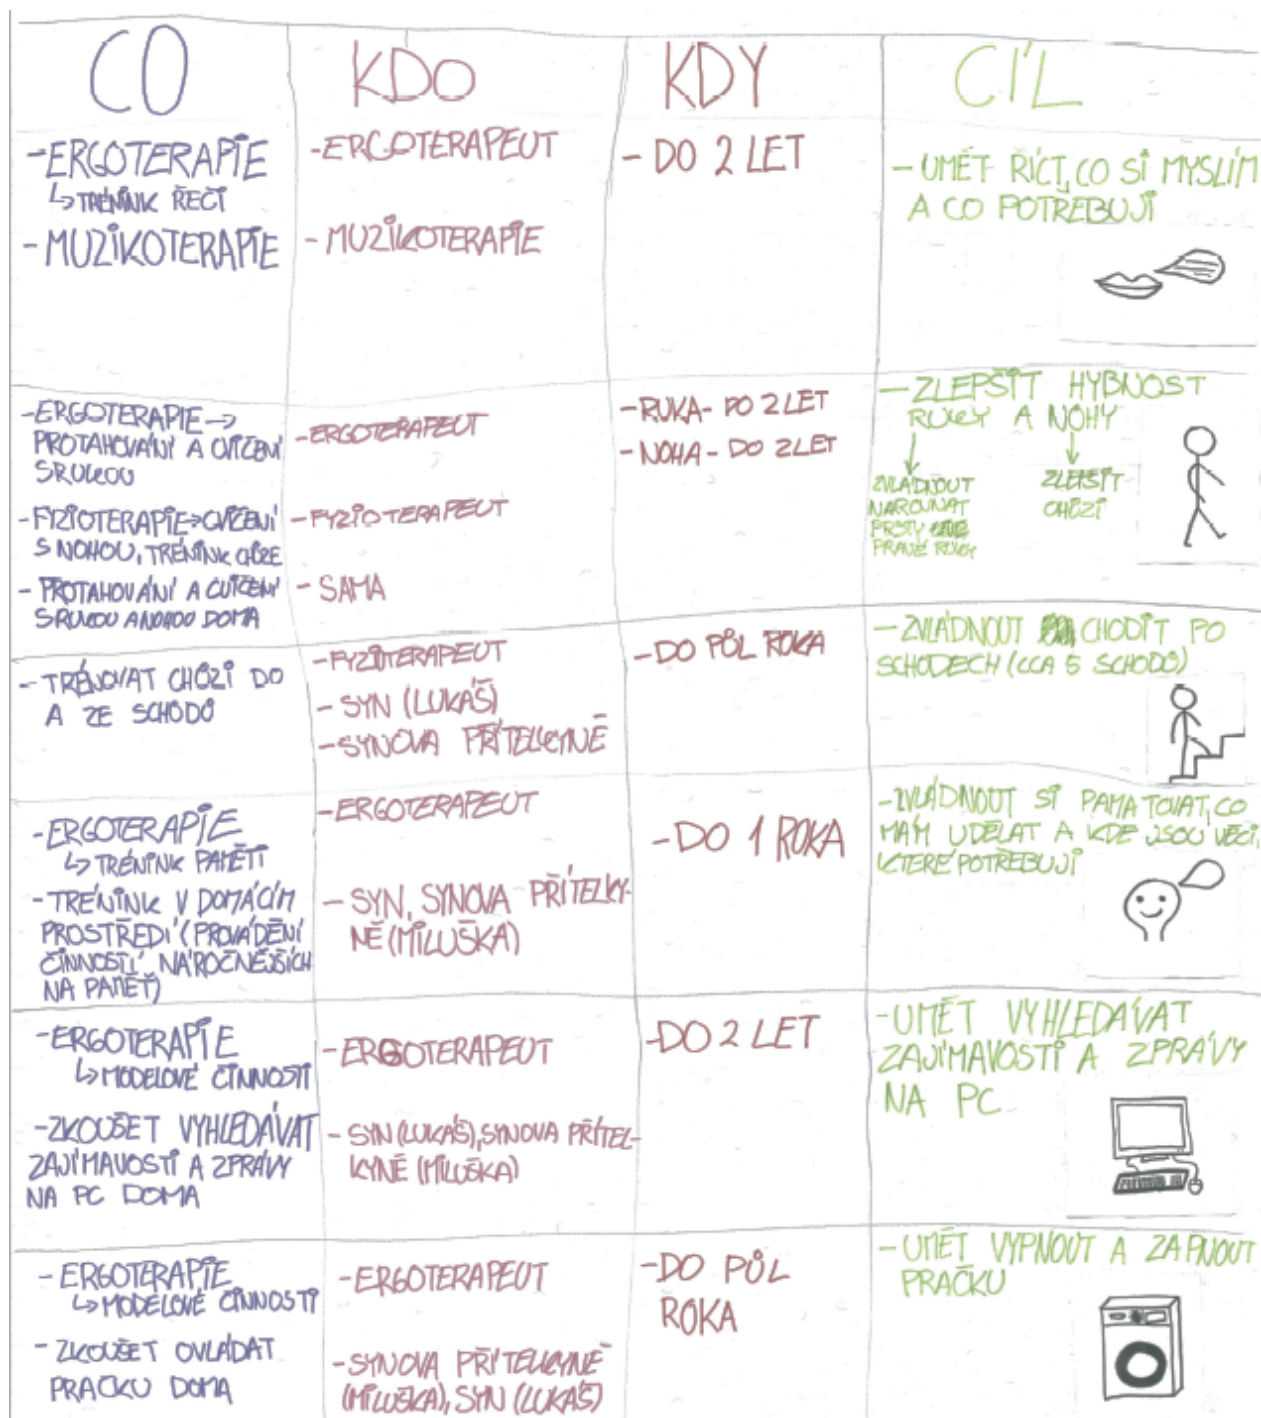 CO
KDO
KDY
CÍL
-ERGOTERAPIE
↳TRÉNINK ŘEČI
-MUZIKOTERAPIE
-ERGOTERAPEUT
-MUZIKOTERAPIE
-DO 2 LET
-UMĚT ŘÍCT, CO SI MYSLÍM
A CO POTŘEBUJI
-ERGOTERAPIE→
PROTAHOVÁNÍ A CVIČENÍ
S RUKOU
-FYZIOTERAPIE→CVIČENÍ
S NOHOU, TRÉNINK CHŮZE
-PROTAHOVÁNÍ A CVIČENÍ
S RUKOU A NOHOU DOMA
-ERGOTERAPEUT
-FYZIOTERAPEUT
-SAMA
-RUKA-DO 2 LET
-NOHA-DO 2 LET
-ZLEPŠIT HYBNOST
RUKY A NOHY
ZVLÁDNOUT
NAROVNAT
PRSTY
PRAVÉ RUKY
ZLEPŠIT
CHŮZI
-TRÉNOVAT CHŮZI DO
A ZE SCHODŮ
-FYZIOTERAPEUT
-SYN (LUKÁŠ)
-SYNOVA PŘÍTELKYNĚ
-DO PŮL ROKA
-ZVLÁDNOUT CHODIT PO
SCHODECH (CCA 5 SCHODŮ)
-ERGOTERAPIE
↳TRÉNINK PAMĚTI
-TRÉNINK V DOMÁCÍM
PROSTŘEDÍ (PROVÁDĚNÍ
ČINNOSTÍ NÁROČNĚJŠÍCH
NA PAMĚŤ)
-ERGOTERAPEUT
-SYN, SYNOVA PŘÍTELKY-
NĚ (MILUŠKA)
-DO 1 ROKA
-ZVLÁDNOUT SI PAMATOVAT, CO
MÁM UDĚLAT A KDE JSOU VĚCI,
KTERÉ POTŘEBUJI
-ERGOTERAPIE
↳MODELOVÉ ČINNOSTI
-ZKOUŠET VYHLEDÁVAT
ZAJÍMAVOSTI A ZPRÁVY
NA PC DOMA
-ERGOTERAPEUT
-SYN (LUKÁŠ), SYNOVA PŘÍTEL-
KYNĚ (MILUŠKA)
-DO 2 LET
-UMĚT VYHLEDÁVAT
ZAJÍMAVOSTI A ZPRÁVY
NA PC
-ERGOTERAPIE
↳MODELOVÉ ČINNOSTI
-ZKOUŠET OVLÁDAT
PRAČKU DOMA
-ERGOTERAPEUT
-SYNOVA PŘÍTELKYNĚ
(MILUŠKA), SYN (LUKÁŠ)
-DO PŮL
ROKA
-UMĚT VYPNOUT A ZAPNOUT
PRAČKU